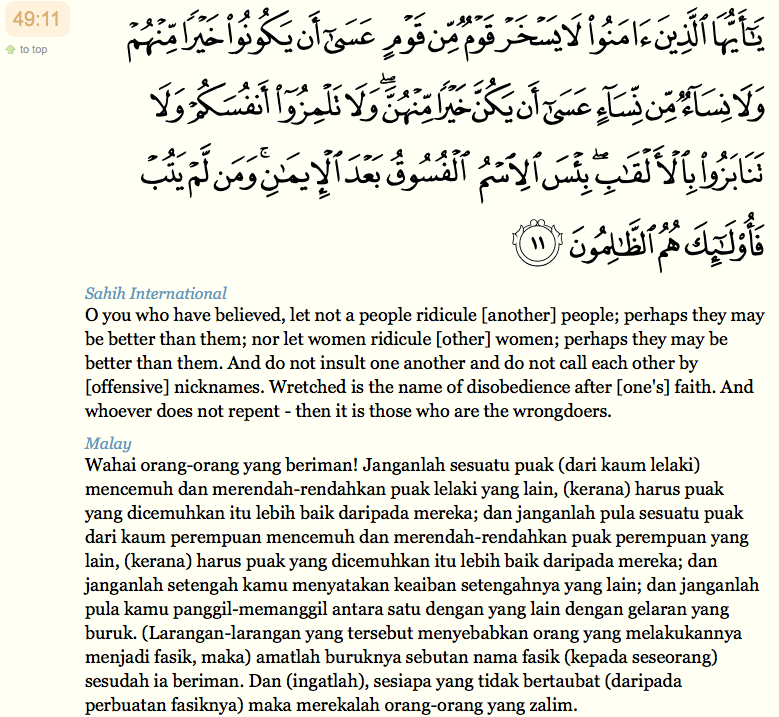 49:11
to top
يَـٰٓأَيُّهَا ٱلَّذِينَ ءَامَنُوا۟ لَا يَسْخَرْ قَوْمٌ مِّن قَوْمٍ عَسَىٰٓ أَن يَكُونُوا۟ خَيْرًا مِّنْهُمْ
وَلَا نِسَآءٌ مِّن نِّسَآءٍ عَسَىٰٓ أَن يَكُنَّ خَيْرًا مِّنْهُنَّ ۖ وَلَا تَلْمِزُوٓا۟ أَنفُسَكُمْ وَلَا
تَنَابَزُوا۟ بِٱلْأَلْقَـٰبِ ۖ بِئْسَ ٱلِٱسْمُ ٱلْفُسُوقُ بَعْدَ ٱلْإِيمَـٰنِ ۚ وَمَن لَّمْ يَتُبْ
فَأُو۟لَـٰٓئِكَ هُمُ ٱلظَّـٰلِمُونَ ١١
Sahih International
O you who have believed, let not a people ridicule [another] people; perhaps they may
be better than them; nor let women ridicule [other] women; perhaps they may be
better than them. And do not insult one another and do not call each other by
[offensive] nicknames. Wretched is the name of disobedience after [one's] faith. And
whoever does not repent - then it is those who are the wrongdoers.
Malay
Wahai orang-orang yang beriman! Janganlah sesuatu puak (dari kaum lelaki)
mencemuh dan merendah-rendahkan puak lelaki yang lain, (kerana) harus puak
yang dicemuhkan itu lebih baik daripada mereka; dan janganlah pula sesuatu puak
dari kaum perempuan mencemuh dan merendah-rendahkan puak perempuan yang
lain, (kerana) harus puak yang dicemuhkan itu lebih baik daripada mereka; dan
janganlah setengah kamu menyatakan keaiban setengahnya yang lain; dan janganlah
pula kamu panggil-memanggil antara satu dengan yang lain dengan gelaran yang
buruk. (Larangan-larangan yang tersebut menyebabkan orang yang melakukannya
menjadi fasik, maka) amatlah buruknya sebutan nama fasik (kepada seseorang)
sesudah ia beriman. Dan (ingatlah), sesiapa yang tidak bertaubat (daripada
perbuatan fasiknya) maka merekalah orang-orang yang zalim.